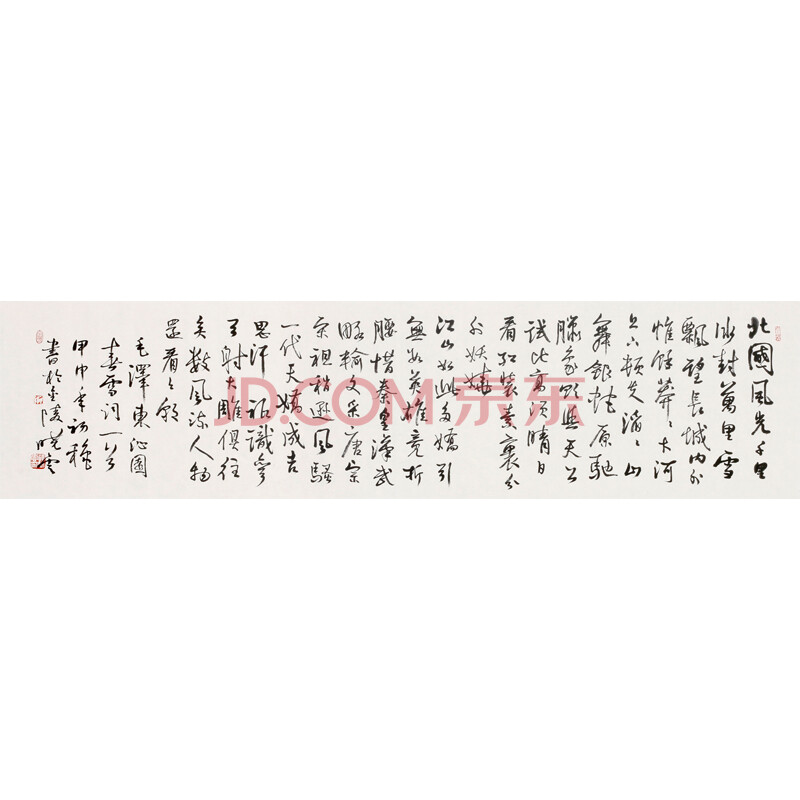 北國風光千里
冰封萬里雪
飄望長城內外
惟餘莽々大河
上下頓失滔々山
舞銀蛇原馳
臘象欲與天公
試比高須晴日
看紅裝素裹分
外妖嬈
江山如此多嬌引
無數英雄競折
腰惜秦皇漢武
略輸文采唐宗
宋祖稍遜風騷
一代天嬌成吉
思汗祇識彎
弓射大雕俱往
矣數風流人物
還看今朝
毛澤東沁園
春雪詞一首
甲申年初穐
書於金陵曉雲
JD.COM 京东